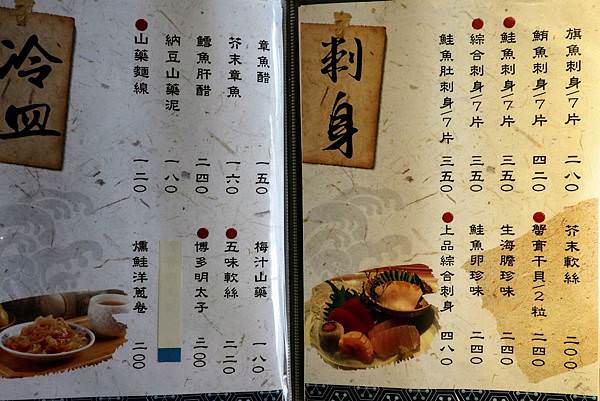 刺身
旗魚刺身/7片 二八〇
鮪魚刺身/7片 四二〇
鮭魚刺身/7片 三五〇
綜合刺身/7片 三五〇
鮭魚肚刺身/7片 三五〇
芥末軟絲 二〇〇
蟹膏干貝/2粒 二四〇
生海膽珍味 二四〇
鮭魚卵珍味 二四〇
上品綜合刺身 四八〇
冷皿
章魚醋 一五〇
芥末章魚 一六〇
鱈魚肝醋 二四〇
納豆山藥泥 一八〇
山藥麵線 一二〇
梅汁山藥 一八〇
五味軟絲 二二〇
博多明太子 二〇〇
燻鮭洋蔥卷 二〇〇